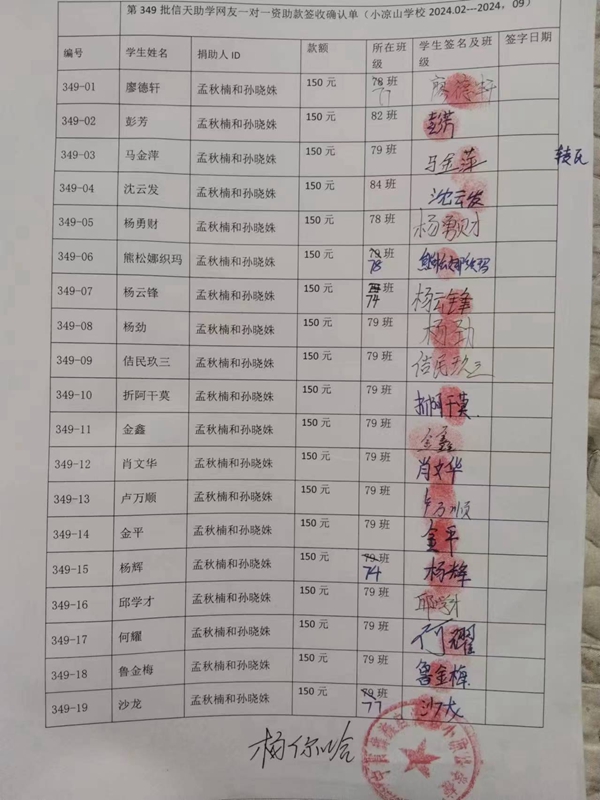 第 349 批信天助学网友一对一资助款签收确认单（小凉山学校 2024.02---2024，09）
编号 学生姓名 捐助人 ID 款额 所在班级 学生签名及班级 签字日期
349-01 廖德轩 孟秋楠和孙晓姝 150 元 78 班 77 廖德轩
349-02 彭芳 孟秋楠和孙晓姝 150 元 82 班 彭芳
349-03 马金萍 孟秋楠和孙晓姝 150 元 79 班 马金萍
349-04 沈云发 孟秋楠和孙晓姝 150 元 84 班 沈云发
349-05 杨勇财 孟秋楠和孙晓姝 150 元 78 班 杨勇财
349-06 熊松娜织玛 孟秋楠和孙晓姝 150 元 79 班 78 熊松娜织玛
349-07 杨云锋 孟秋楠和孙晓姝 150 元 班 74 杨云锋
349-08 杨劲 孟秋楠和孙晓姝 150 元 79 班 杨劲
349-09 佶民玖三 孟秋楠和孙晓姝 150 元 79 班 佶民玖三
349-10 折阿干莫 孟秋楠和孙晓姝 150 元 79 班 折阿干莫
349-11 金鑫 孟秋楠和孙晓姝 150 元 79 班 金鑫
349-12 肖文华 孟秋楠和孙晓姝 150 元 79 班 肖文华
349-13 卢万顺 孟秋楠和孙晓姝 150 元 79 班 卢万顺
349-14 金平 孟秋楠和孙晓姝 150 元 79 班 金平
349-15 杨辉 孟秋楠和孙晓姝 150 元 79 班 74 杨辉
349-16 邱学才 孟秋楠和孙晓姝 150 元 79 班 邱学才
349-17 何耀 孟秋楠和孙晓姝 150 元 79 班 何耀
349-18 鲁金梅 孟秋楠和孙晓姝 150 元 79 班 鲁金梅
349-19 沙龙 孟秋楠和孙晓姝 150 元 79 班 77 沙龙